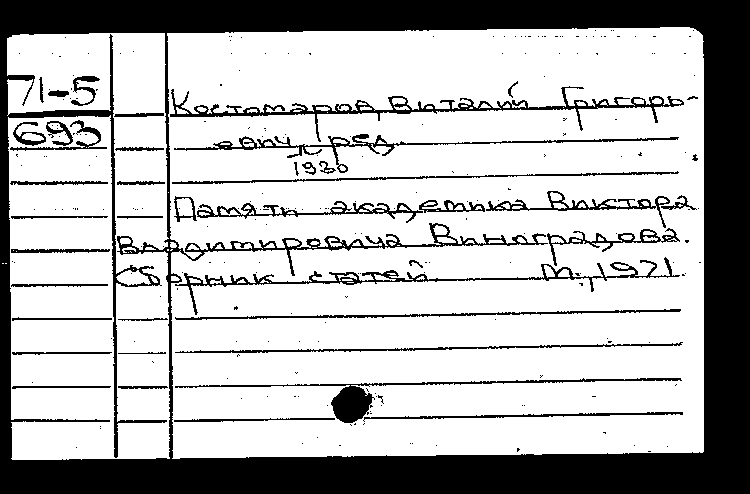 71-5
693
Костомаров, Виталий Григорь-
евич, ред.
1930
Памяти академика Виктора
Владимировича Виноградова.
Сборник статей М., 1971